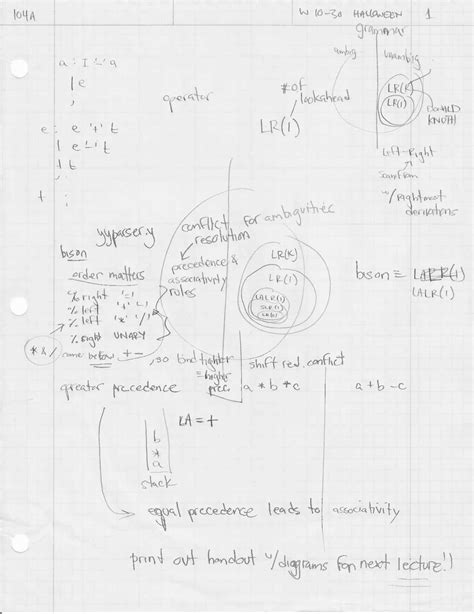 104A
W 10-30 HALLOWEEN 1
grammar
ambig
unambig
a : I '=' a
| e
;
operator
# of
lookahead
LR(1)
LR(k)
LR(1)
DONALD
KNUTH
e : e '+' t
| e '-' t
| t
;
t :
Left-Right
scan from
w/ Rightmost
derivations
yyparser.y
bison
order matters
% right '='
% left '+' '-'
% left '*' '/'
% right UNARY
conflict for ambiguities
resolution
precedence &
associativity
rules
LR(k)
LR(1)
LALR(1)
SLR(1)
LR(0)
bison ≡ LALR(1)
LALR(1)
* & / came below + -, so bind tighter
= higher
prec.
shift red. conflict
greater precedence
a * b * c
a + b - c
LA = +
b
*
a
stack
equal precedence leads to associativity
print out handout w/ diagrams for next lecture!)